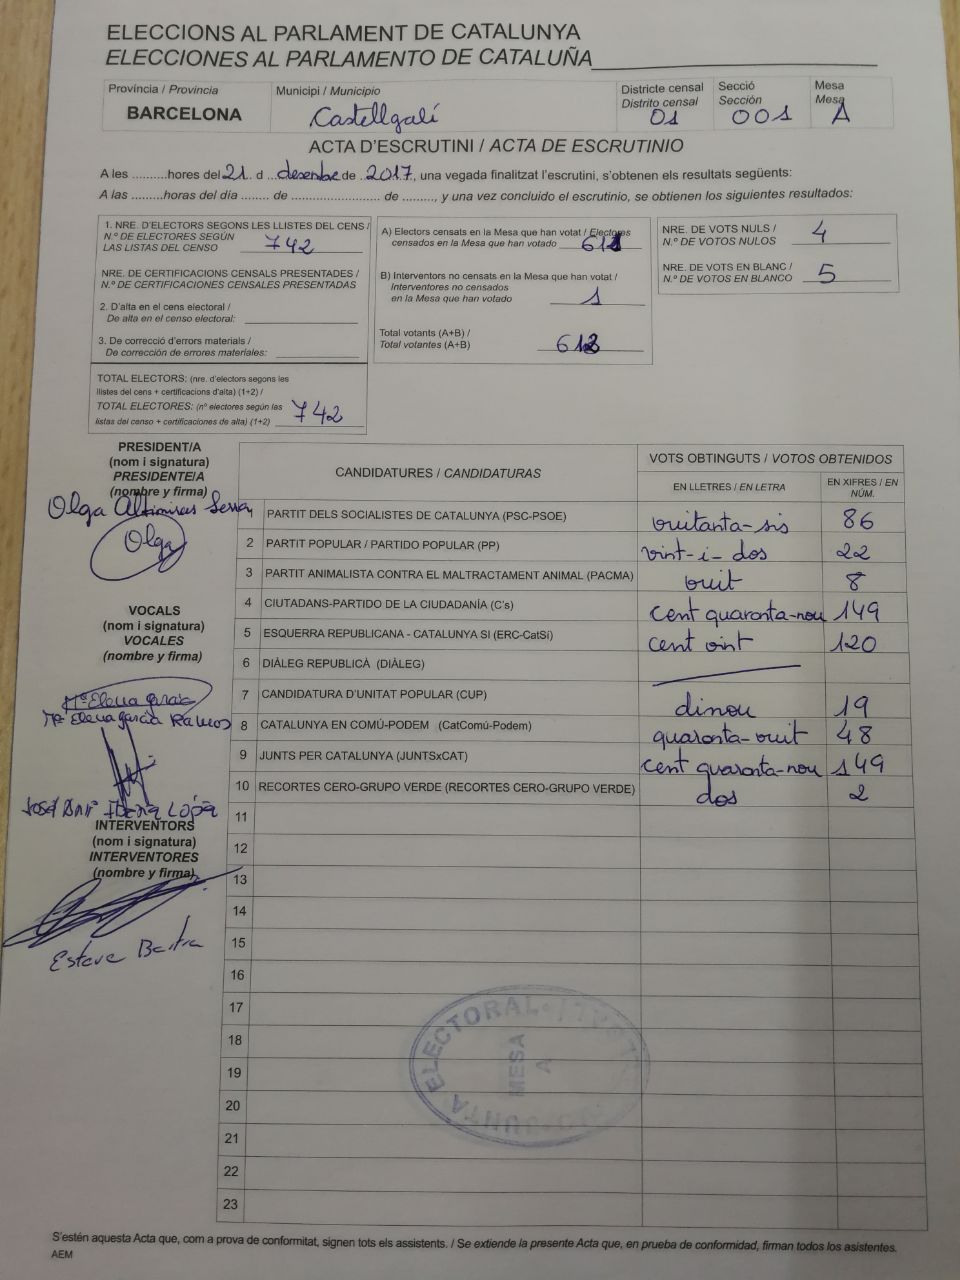 ELECCIONS AL PARLAMENT DE CATALUNYA
ELECCIONES AL PARLAMENTO DE CATALUÑA
Província / Provincia
BARCELONA
Municipi / Municipio
Castellgalí
Districte censal
Distrito censal
01
Secció
Sección
001
Mesa
Mesa
A
ACTA D'ESCRUTINI / ACTA DE ESCRUTINIO
A les ..........hores del 21. d ...desembre de ..2017, una vegada finalitzat l'escrutini, s'obtenen els resultats següents:
A las .........horas del día ........ de ......................... de ........., y una vez concluido el escrutinio, se obtienen los siguientes resultados:
1. NRE. D'ELECTORS SEGONS LES LLISTES DEL CENS /
N.º DE ELECTORES SEGÚN
LAS LISTAS DEL CENSO 742
NRE. DE CERTIFICACIONS CENSALS PRESENTADES /
N.º DE CERTIFICACIONES CENSALES PRESENTADAS
2. D'alta en el cens electoral /
De alta en el censo electoral:
3. De correcció d'errors materials /
De corrección de errores materiales:
TOTAL ELECTORS: (nre. d'electors segons les
llistes del cens + certificacions d'alta) (1+2) /
TOTAL ELECTORES: (nº electores según las
listas del censo + certificaciones de alta) (1+2) 742
A) Electors censats en la Mesa que han votat / Electores
censados en la Mesa que han votado
B) Interventors no censats en la Mesa que han votat /
Interventores no censados
en la Mesa que han votado 1
Total votants (A+B) /
Total votantes (A+B)
NRE. DE VOTS NULS /
N.º DE VOTOS NULOS 4
NRE. DE VOTS EN BLANC /
N.º DE VOTOS EN BLANCO 5
PRESIDENT/A
(nom i signatura)
PRESIDENTE/A
(nombre y firma)
Olga
Olga
VOCALS
(nom i signatura)
VOCALES
(nombre y firma)
Mª Elena García
Mª Elena García Ramos
José
INTERVENTORS
(nom i signatura)
INTERVENTORES
(nombre y firma)
Esteve
CANDIDATURES / CANDIDATURAS
VOTS OBTINGUTS / VOTOS OBTENIDOS
EN LLETRES / EN LETRA
EN XIFRES / EN NÚM.
1 PARTIT DELS SOCIALISTES DE CATALUNYA (PSC-PSOE) vuitanta-sis 86
2 PARTIT POPULAR / PARTIDO POPULAR (PP) vint-i-dos 22
3 PARTIT ANIMALISTA CONTRA EL MALTRACTAMENT ANIMAL (PACMA) vuit 8
4 CIUTADANS-PARTIDO DE LA CIUDADANÍA (C's) cent quaranta-nou 149
5 ESQUERRA REPUBLICANA - CATALUNYA SI (ERC-CatSí) cent vint 120
6 DIÀLEG REPUBLICÀ (DIÀLEG)
7 CANDIDATURA D'UNITAT POPULAR (CUP) dinou 19
8 CATALUNYA EN COMÚ-PODEM (CatComú-Podem) quaranta-vuit 48
9 JUNTS PER CATALUNYA (JUNTSxCAT) cent quaranta-nou 149
10 RECORTES CERO-GRUPO VERDE (RECORTES CERO-GRUPO VERDE) dos 2
11
12
13
14
15
16
17
18
19
20
21
22
23
JUNTA ELECTORAL
MESA
A
S'estén aquesta Acta que, com a prova de conformitat, signen tots els assistents. / Se extiende la presente Acta que, en prueba de conformidad, firman todos los asistentes.
AEM